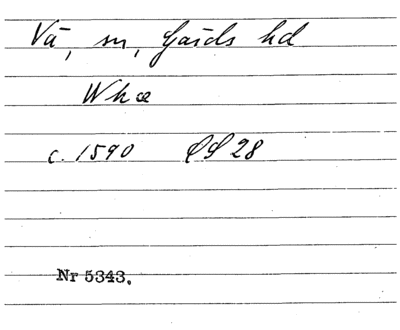 Vā, m, Gaids hd
Whœ
c. 1590 QS 28
Nr 5343.